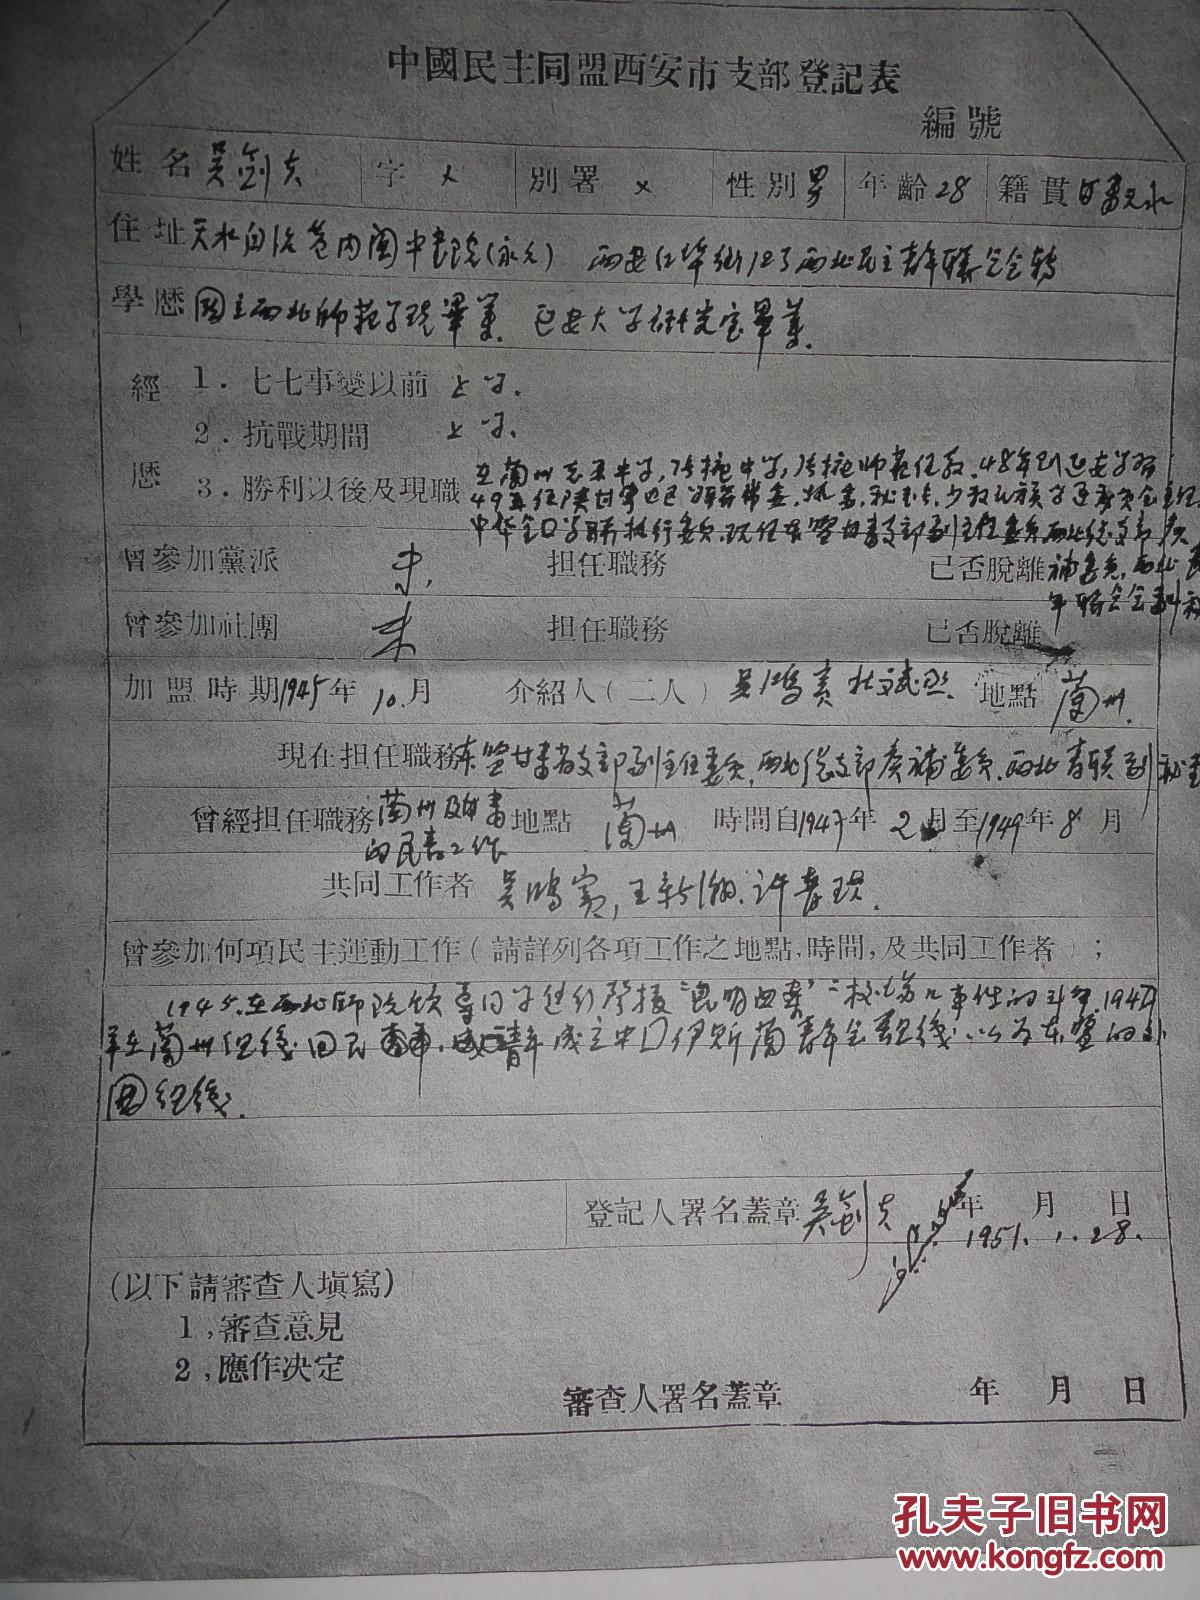 中國民主同盟西安市支部登記表
編號
姓名 吴剑夫 字 × 別署 × 性別 男 年齡 28 籍貫 甘肃天水
住址 天水自治巷内 西北民主青年联合会转
學歷 国立西北师范学院畢業 延安大学研究室畢業.
經歷 1. 七七事變以前 上学.
2. 抗戰期間 上学.
3. 勝利以後及現職 在蘭州 中学, 张掖中学, 张掖师范任教. 48年到延安学习
49年任陕甘宁边区学联常委.
中华全国学联执行委员. 现任民盟甘肃支部副主任委员西北总支部候
曾參加黨派 未. 担任職務 已否脫離 補委员. 西北
曾參加社團 未 担任職務 已否脫離
加盟時期 1945年 10.月 介紹人(二人) 吴鸿宾 地點 蘭州.
現在担任職務 民盟甘肃省支部副主任委员, 西北总支部候補委员. 西北青联副
曾經担任職務 蘭州及甘肃 地點 蘭州 時間自1947年 2月至1949年8月
的民青工作
共同工作者 吴鸿宾, 王新潮. 许青琪.
曾參加何項民主運動工作(請詳列各項工作之地點,時間,及共同工作者);
1945.在西北师院领导同学进行声援“昆明血案” 事件的斗争. 1947
年在蘭州组织回民 青年成立中国伊斯蘭青年会组织. 以为民盟的外
围组织.
登記人署名蓋章 吴剑夫 年 月 日
1951.1.28.
(以下請審查人填寫)
1,審查意見
2,應作决定
審查人署名蓋章 年 月 日
孔夫子旧书网
www.kongfz.com